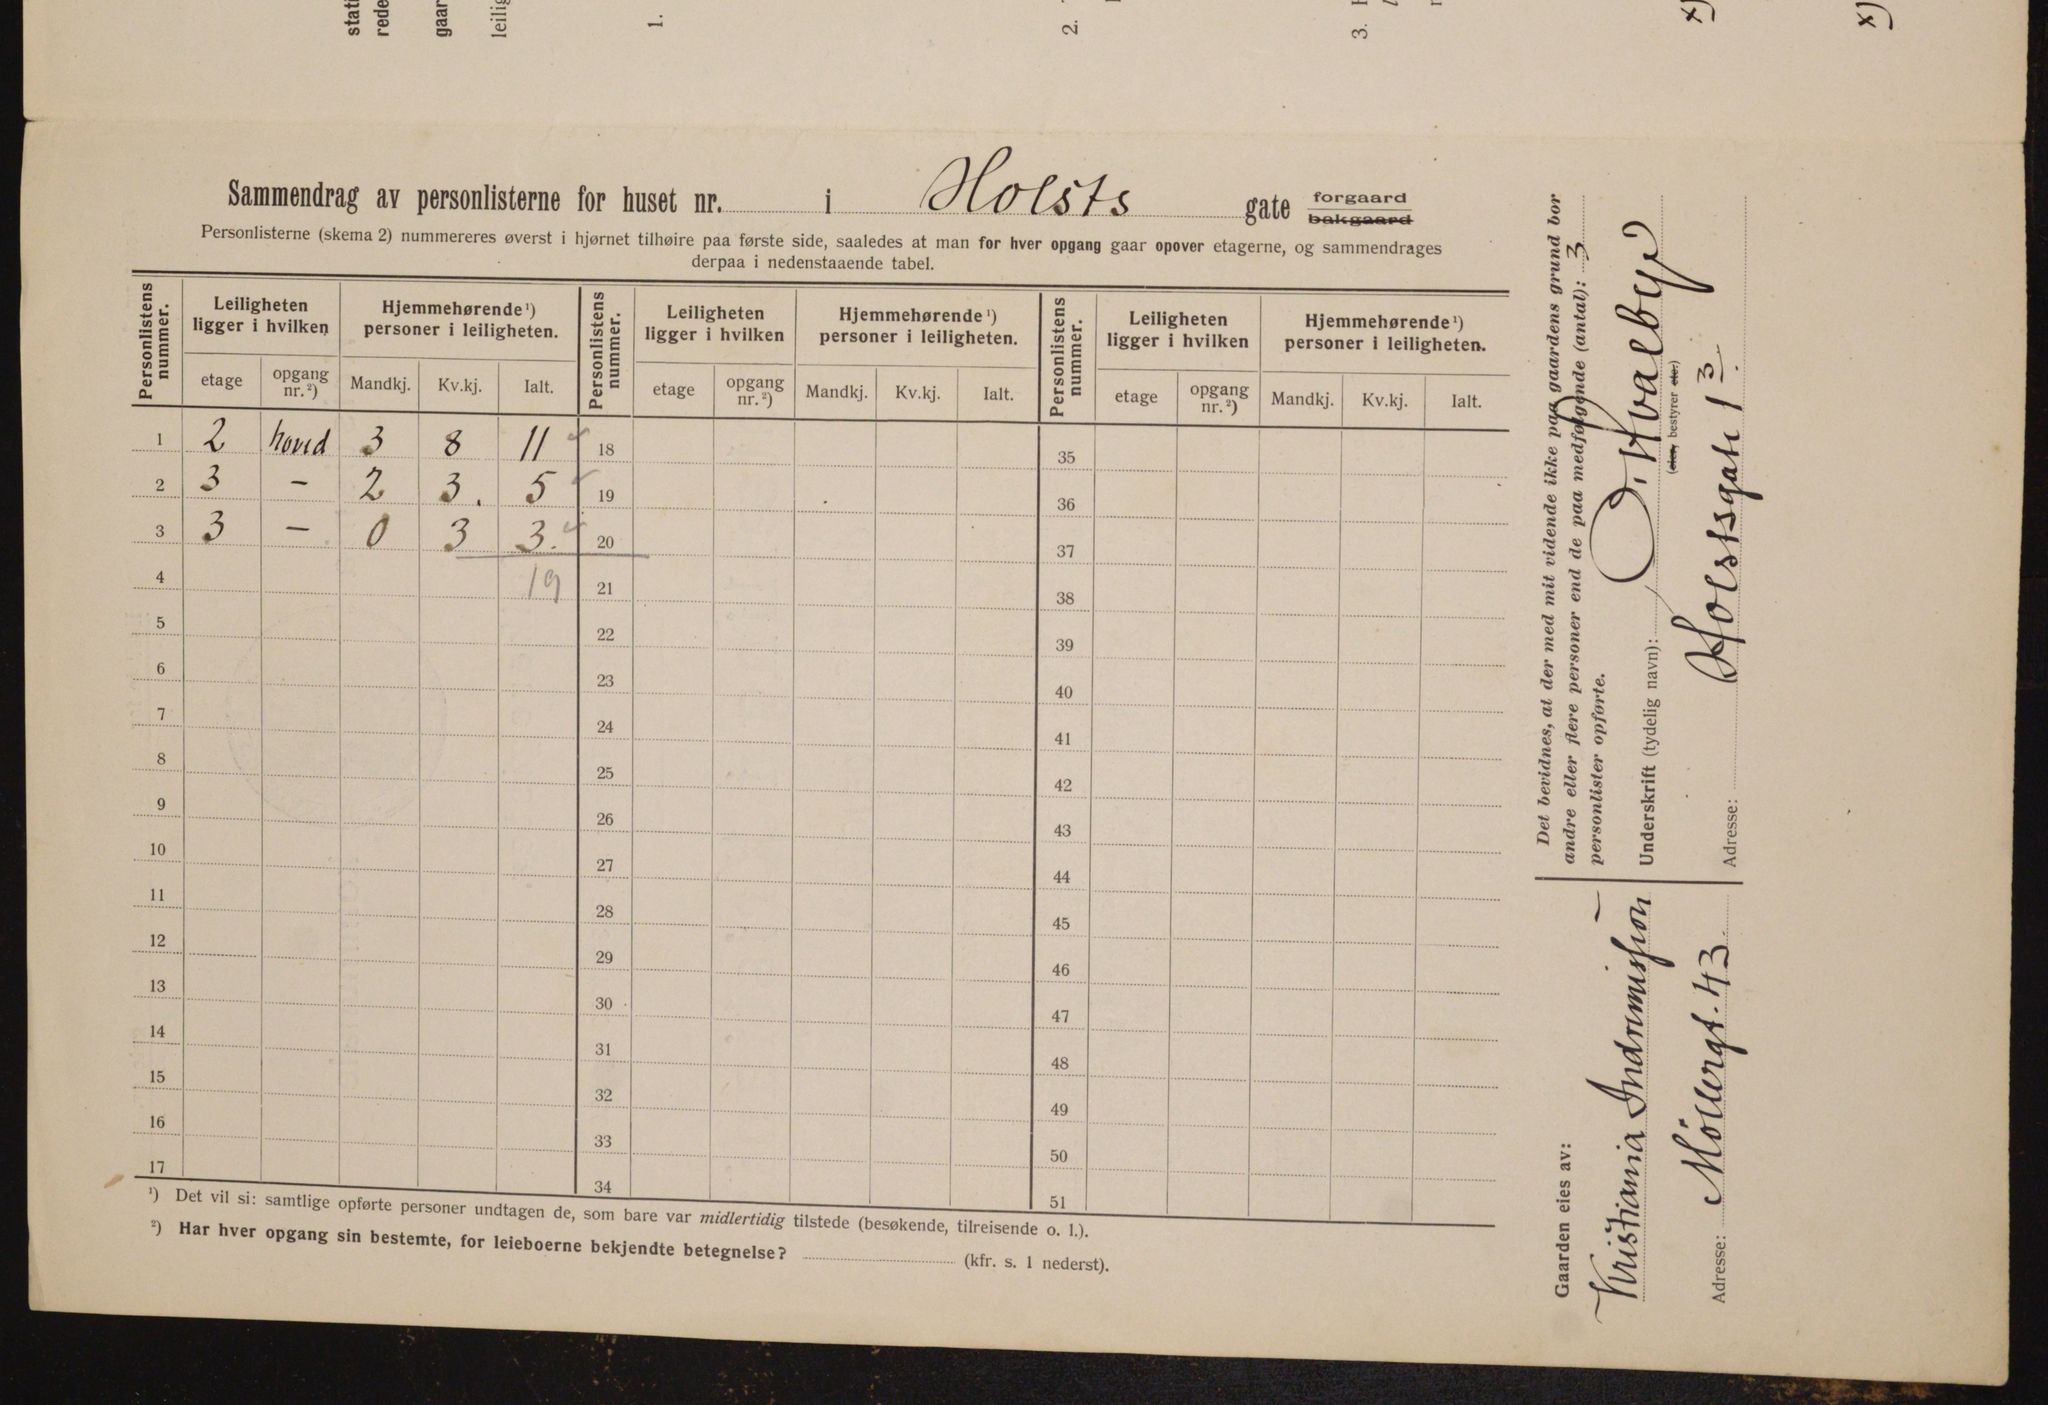 stati
rede
gaar
leilig
1.
2.
3.
x)
x)
Sammendrag av personlisterne for huset nr. i Holsts gate forgaard
bakgaard
Personlisterne (skema 2) nummereres øverst i hjørnet tilhøire paa første side, saaledes at man for hver opgang gaar opover etagerne, og sammendrages
derpaa i nedenstaaende tabel.
Personlistens nummer. Leiligheten ligger i hvilken Hjemmehørende¹) personer i leiligheten. Personlistens nummer. Leiligheten ligger i hvilken Hjemmehørende¹) personer i leiligheten. Personlistens nummer. Leiligheten ligger i hvilken Hjemmehørende¹) personer i leiligheten.
etage opgang nr.²) Mandkj. Kv.kj. Ialt. etage opgang nr.²) Mandkj. Kv.kj. Ialt. etage opgang nr.²) Mandkj. Kv.kj. Ialt.
1 2 hoved 3 8 11 18 35
2 3 – 2 3. 5 19 36
3 3 – 0 3 3. 20 37
4 19 21 38
5 22 39
6 23 40
7 24 41
8 25 42
9 26 43
10 27 44
11 28 45
12 29 46
13 30 47
14 31 48
15 32 49
16 33 50
17 34 51
¹) Det vil si: samtlige opførte personer undtagen de, som bare var midlertidig tilstede (besøkende, tilreisende o. l.).
²) Har hver opgang sin bestemte, for leieboerne bekjendte betegnelse? (kfr. s. 1 nederst).
Det bevidnes, at der med mit vidende ikke paa gaardens grund bor
andre eller flere personer end de paa medfølgende (antal): 3
personlister opførte.
Underskrift (tydelig navn): O. Hvalbye
(eier, bestyrer etc.)
Adresse: Holstsgate 13.
Gaarden eies av:
Kristiania Indremission
Adresse: Möllergt. 43